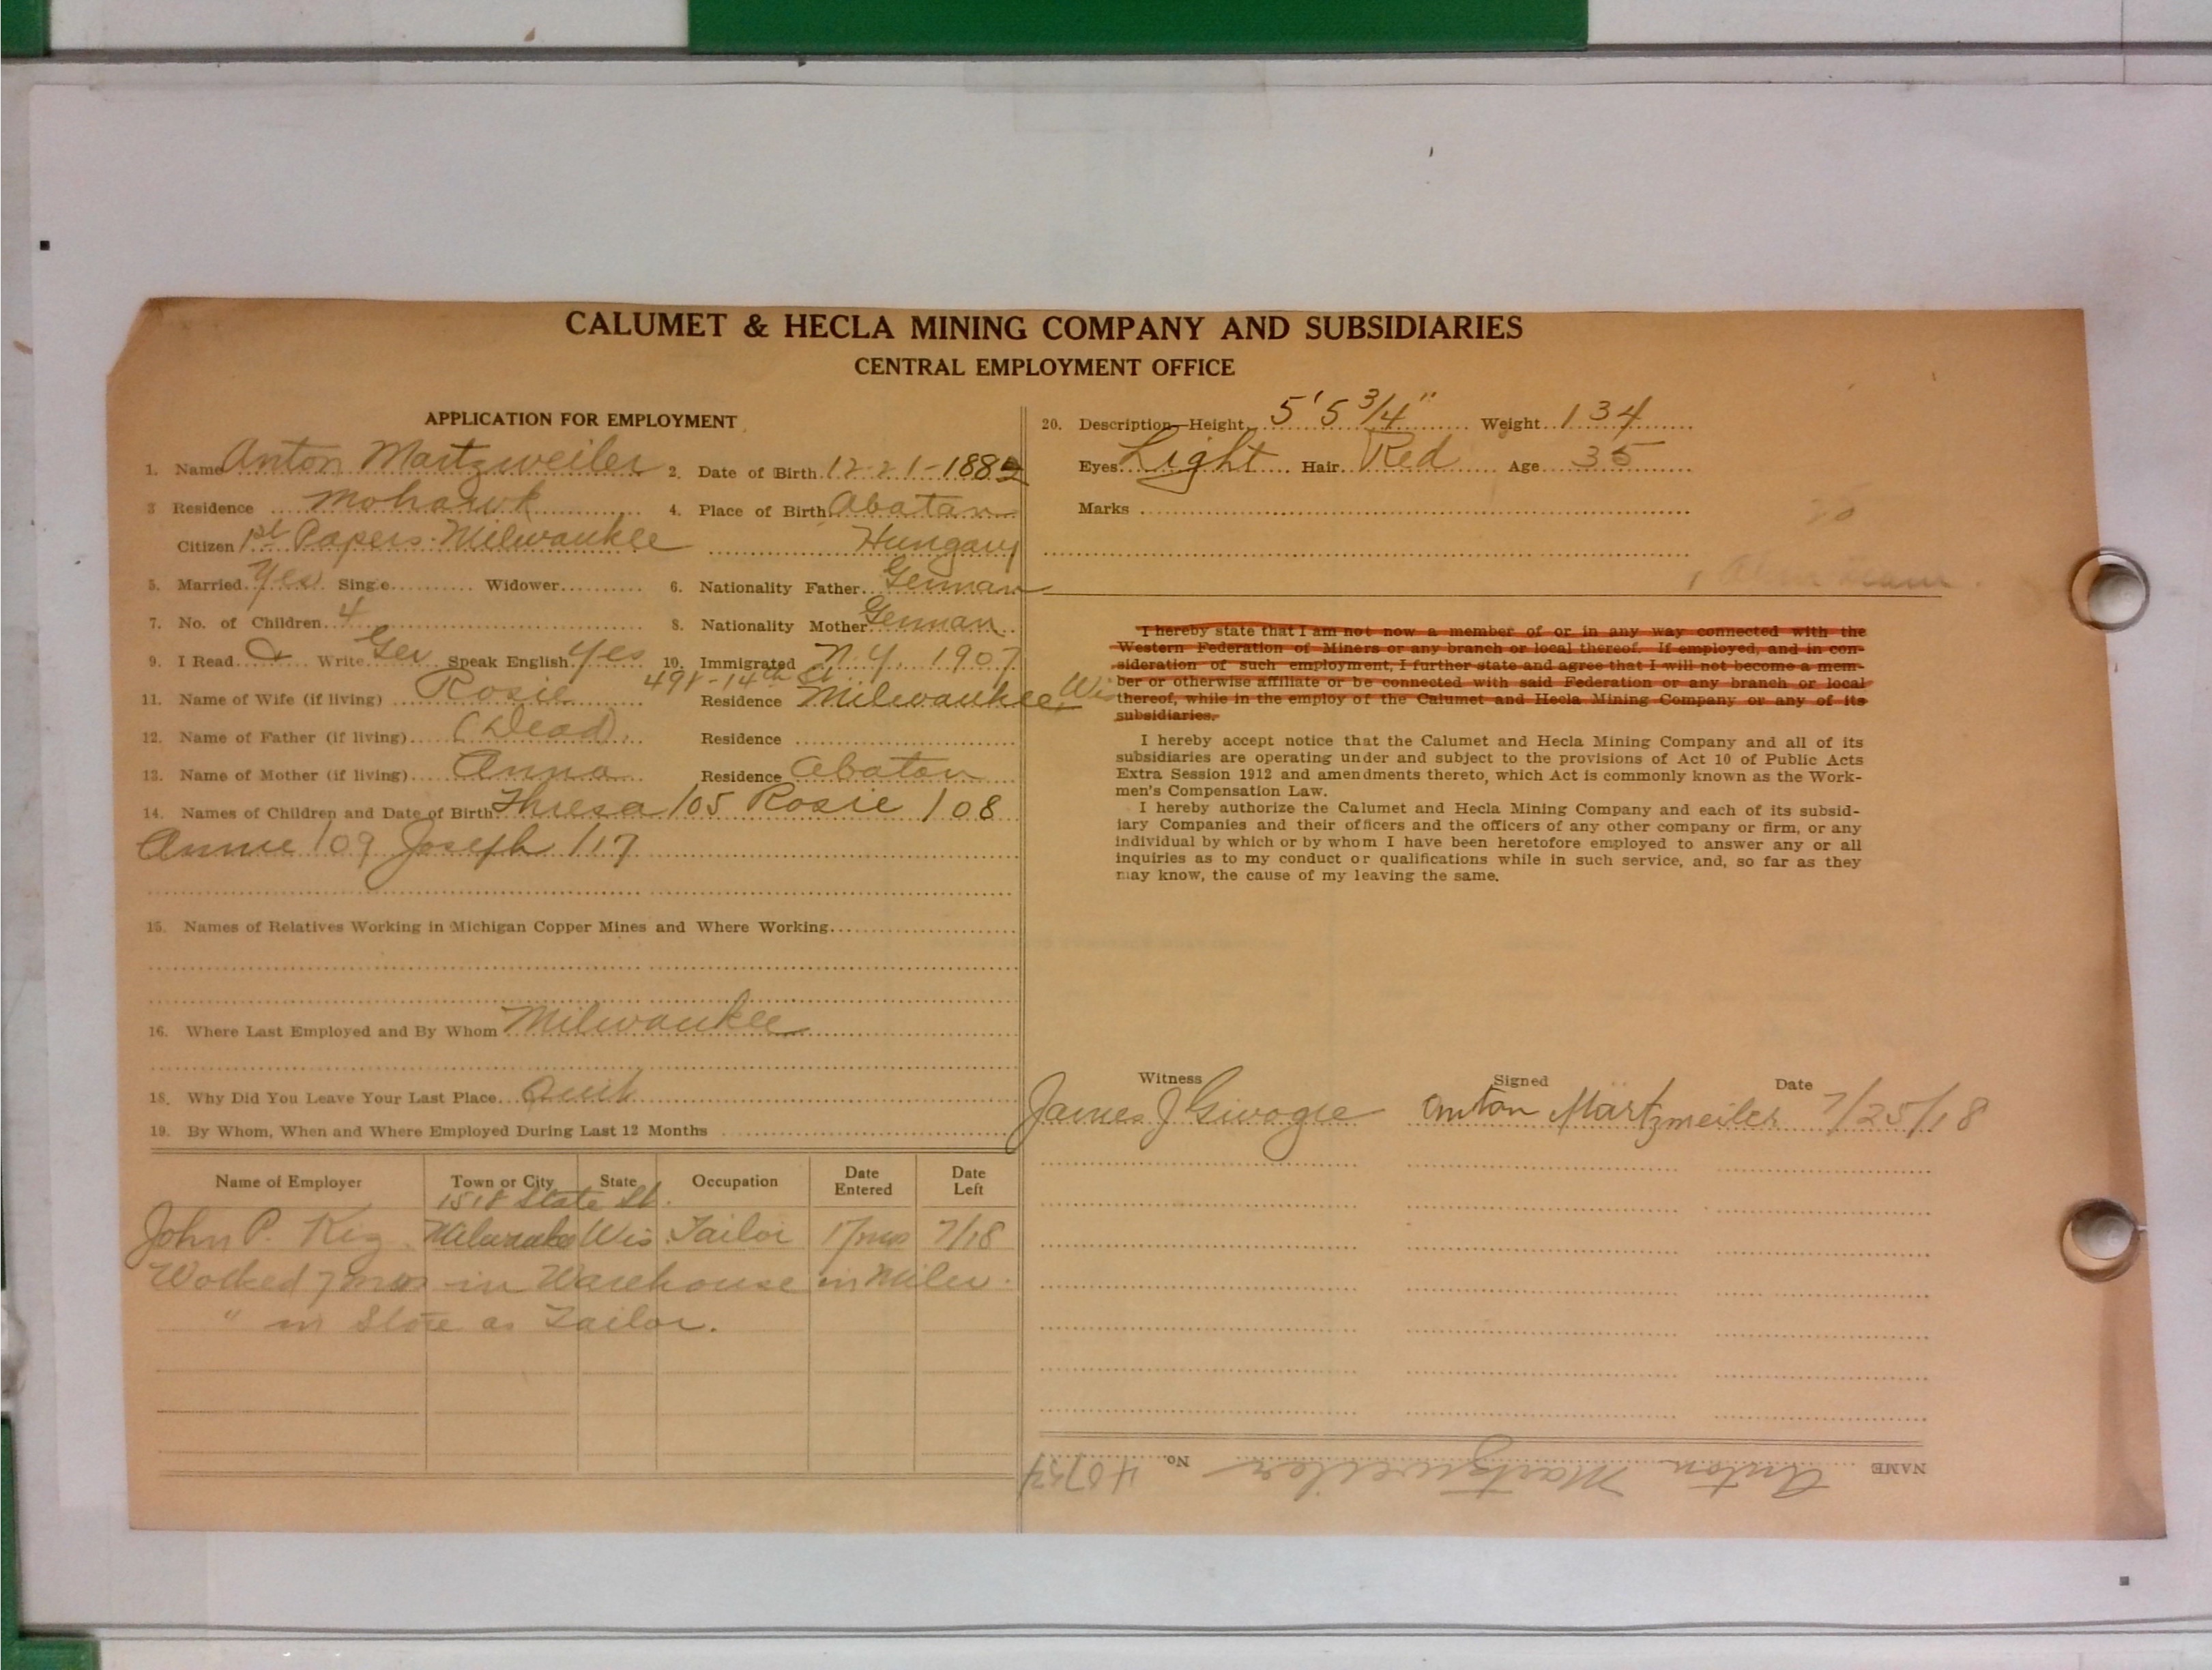 CALUMET & HECLA MINING COMPANY AND SUBSIDIARIES
CENTRAL EMPLOYMENT OFFICE
APPLICATION FOR EMPLOYMENT
1. Name Anton Martzweiler 2. Date of Birth 12-21-1882
3 Residence Mohawk 4. Place of Birth Abatan
Citizen 1st Papers. Milwaukee Hungary
5. Married Yes Single Widower 6. Nationality Father German
7. No. of Children 4 8. Nationality Mother German
9. I Read & Write Ger Speak English Yes 10. Immigrated N.Y. 1907
491-14th St
11. Name of Wife (if living) Rosie Residence Milwaukee, Wis
12. Name of Father (if living) (Dead) Residence
13. Name of Mother (if living) Anna Residence Abatan
14. Names of Children and Date of Birth Thresa /05 Rosie /08
Annie /09 Joseph /17
15. Names of Relatives Working in Michigan Copper Mines and Where Working
16. Where Last Employed and By Whom Milwaukee
18. Why Did You Leave Your Last Place Quit
19. By Whom, When and Where Employed During Last 12 Months
Name of Employer Town or City State Occupation Date Entered Date Left
1518 State St.
John P. Milwaukee Wis Tailor 7/18
Worked 7 mos in Warehouse in Milw.
" in Store as Tailor.
20. Description—Height 5' 5 3/4" Weight 134
Eyes Light Hair Red Age 35
Marks
I hereby state that I am not now a member of or in any way connected with the
Western Federation of Miners or any branch or local thereof. If employed, and in con-
sideration of such employment, I further state and agree that I will not become a mem-
ber or otherwise affiliate or be connected with said Federation or any branch or local
thereof, while in the employ of the Calumet and Hecla Mining Company or any of its
subsidiaries.
I hereby accept notice that the Calumet and Hecla Mining Company and all of its
subsidiaries are operating under and subject to the provisions of Act 10 of Public Acts
Extra Session 1912 and amendments thereto, which Act is commonly known as the Work-
men's Compensation Law.
I hereby authorize the Calumet and Hecla Mining Company and each of its subsid-
iary Companies and their officers and the officers of any other company or firm, or any
individual by which or by whom I have been heretofore employed to answer any or all
inquiries as to my conduct or qualifications while in such service, and, so far as they
may know, the cause of my leaving the same.
Witness Signed Date
James J Anton Martzweiler 7/25/18
NAME Anton Martzweiler No. 40757